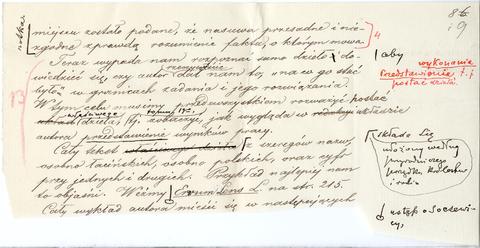 notka:
8 6
19
miejscu zostało podane, że nasuwa przesadne i nie-
zgodne z prawdą rozumienie faktu, o którym mowa.
4
Teraz wypada nam rozpoznać samo dzieło i do-
wiedzieć się, czy autor dał nam to, „na co go stać
było" w granicach zadania i jego rozwiązania.
13
W tym celu musimy przedewszystkiem rozważyć postać
dzieła, tj. zobaczyć, jak wygląda w układzie
autora przedstawienie wyników pracy.
Cały tekst z szeregów nazw,
osobno łacińskich, osobno polskich, oraz cyfr
przy jednych i drugich. Przykład najlepiej nam
to objaśni. Weźmy Ervum Lens L. na str. 215.
Cały wykład autora mieści się w następujących
aby
wykonania
Przedstawienie t. j.
postać dzieła.
składa się
ułożony według
porządku
ustęp o Soczewi-
cy,